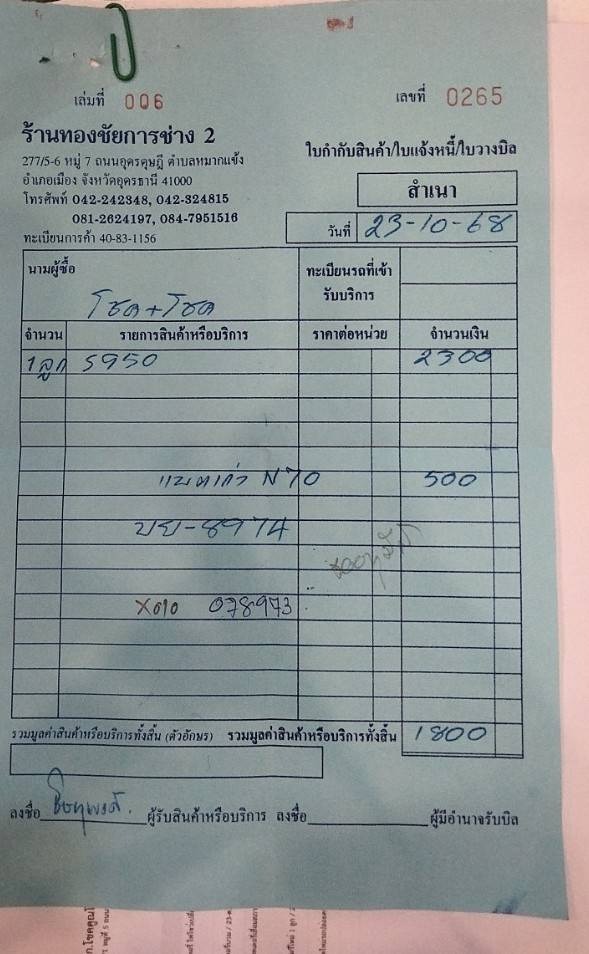 เล่มที่ 006
เลขที่ 0265
ร้านทองชัยการช่าง 2
277/5-6 หมู่ 7 ถนนอุดรดุษฎี ตำบลหมากแข้ง
อำเภอเมือง จังหวัดอุดรธานี 41000
โทรศัพท์ 042-242348, 042-324815
081-2624197, 084-7951516
ทะเบียนการค้า 40-83-1156
ใบกำกับสินค้า/ใบแจ้งหนี้/ใบวางบิล
สำเนา
วันที่ 23-10-68
นามผู้ซื้อ
โชค+โชค
ทะเบียนรถที่เข้า
รับบริการ
จำนวน รายการสินค้าหรือบริการ ราคาต่อหน่วย จำนวนเงิน
1ลูก S950 2300
แบตเก่า N70 500
บย-8974
078973
รวมมูลค่าสินค้าหรือบริการทั้งสิ้น (ตัวอักษร) รวมมูลค่าสินค้าหรือบริการทั้งสิ้น 1800
ลงชื่อ ผู้รับสินค้าหรือบริการ ลงชื่อ ผู้มีอำนาจรับบิล